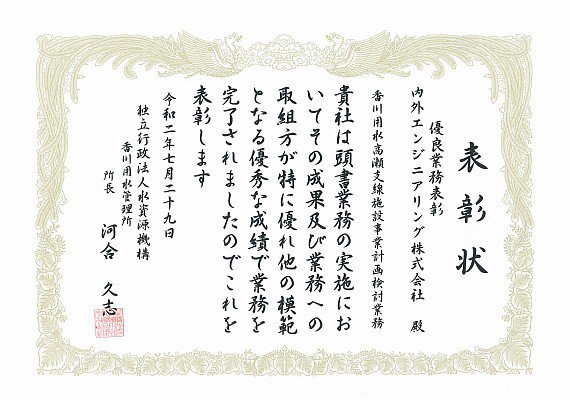 表彰状
優良業務表彰
内外エンジニアリング株式会社 殿
香川用水高瀬支線施設事業計画検討業務
貴社は頭書業務の実施にお
いてその成果及び業務への
取組方が特に優れ他の模範
となる優秀な成績で業務を
完了されましたのでこれを
表彰します
令和二年七月二十九日
独立行政法人水資源機構
香川用水管理所
所長 河合 久志